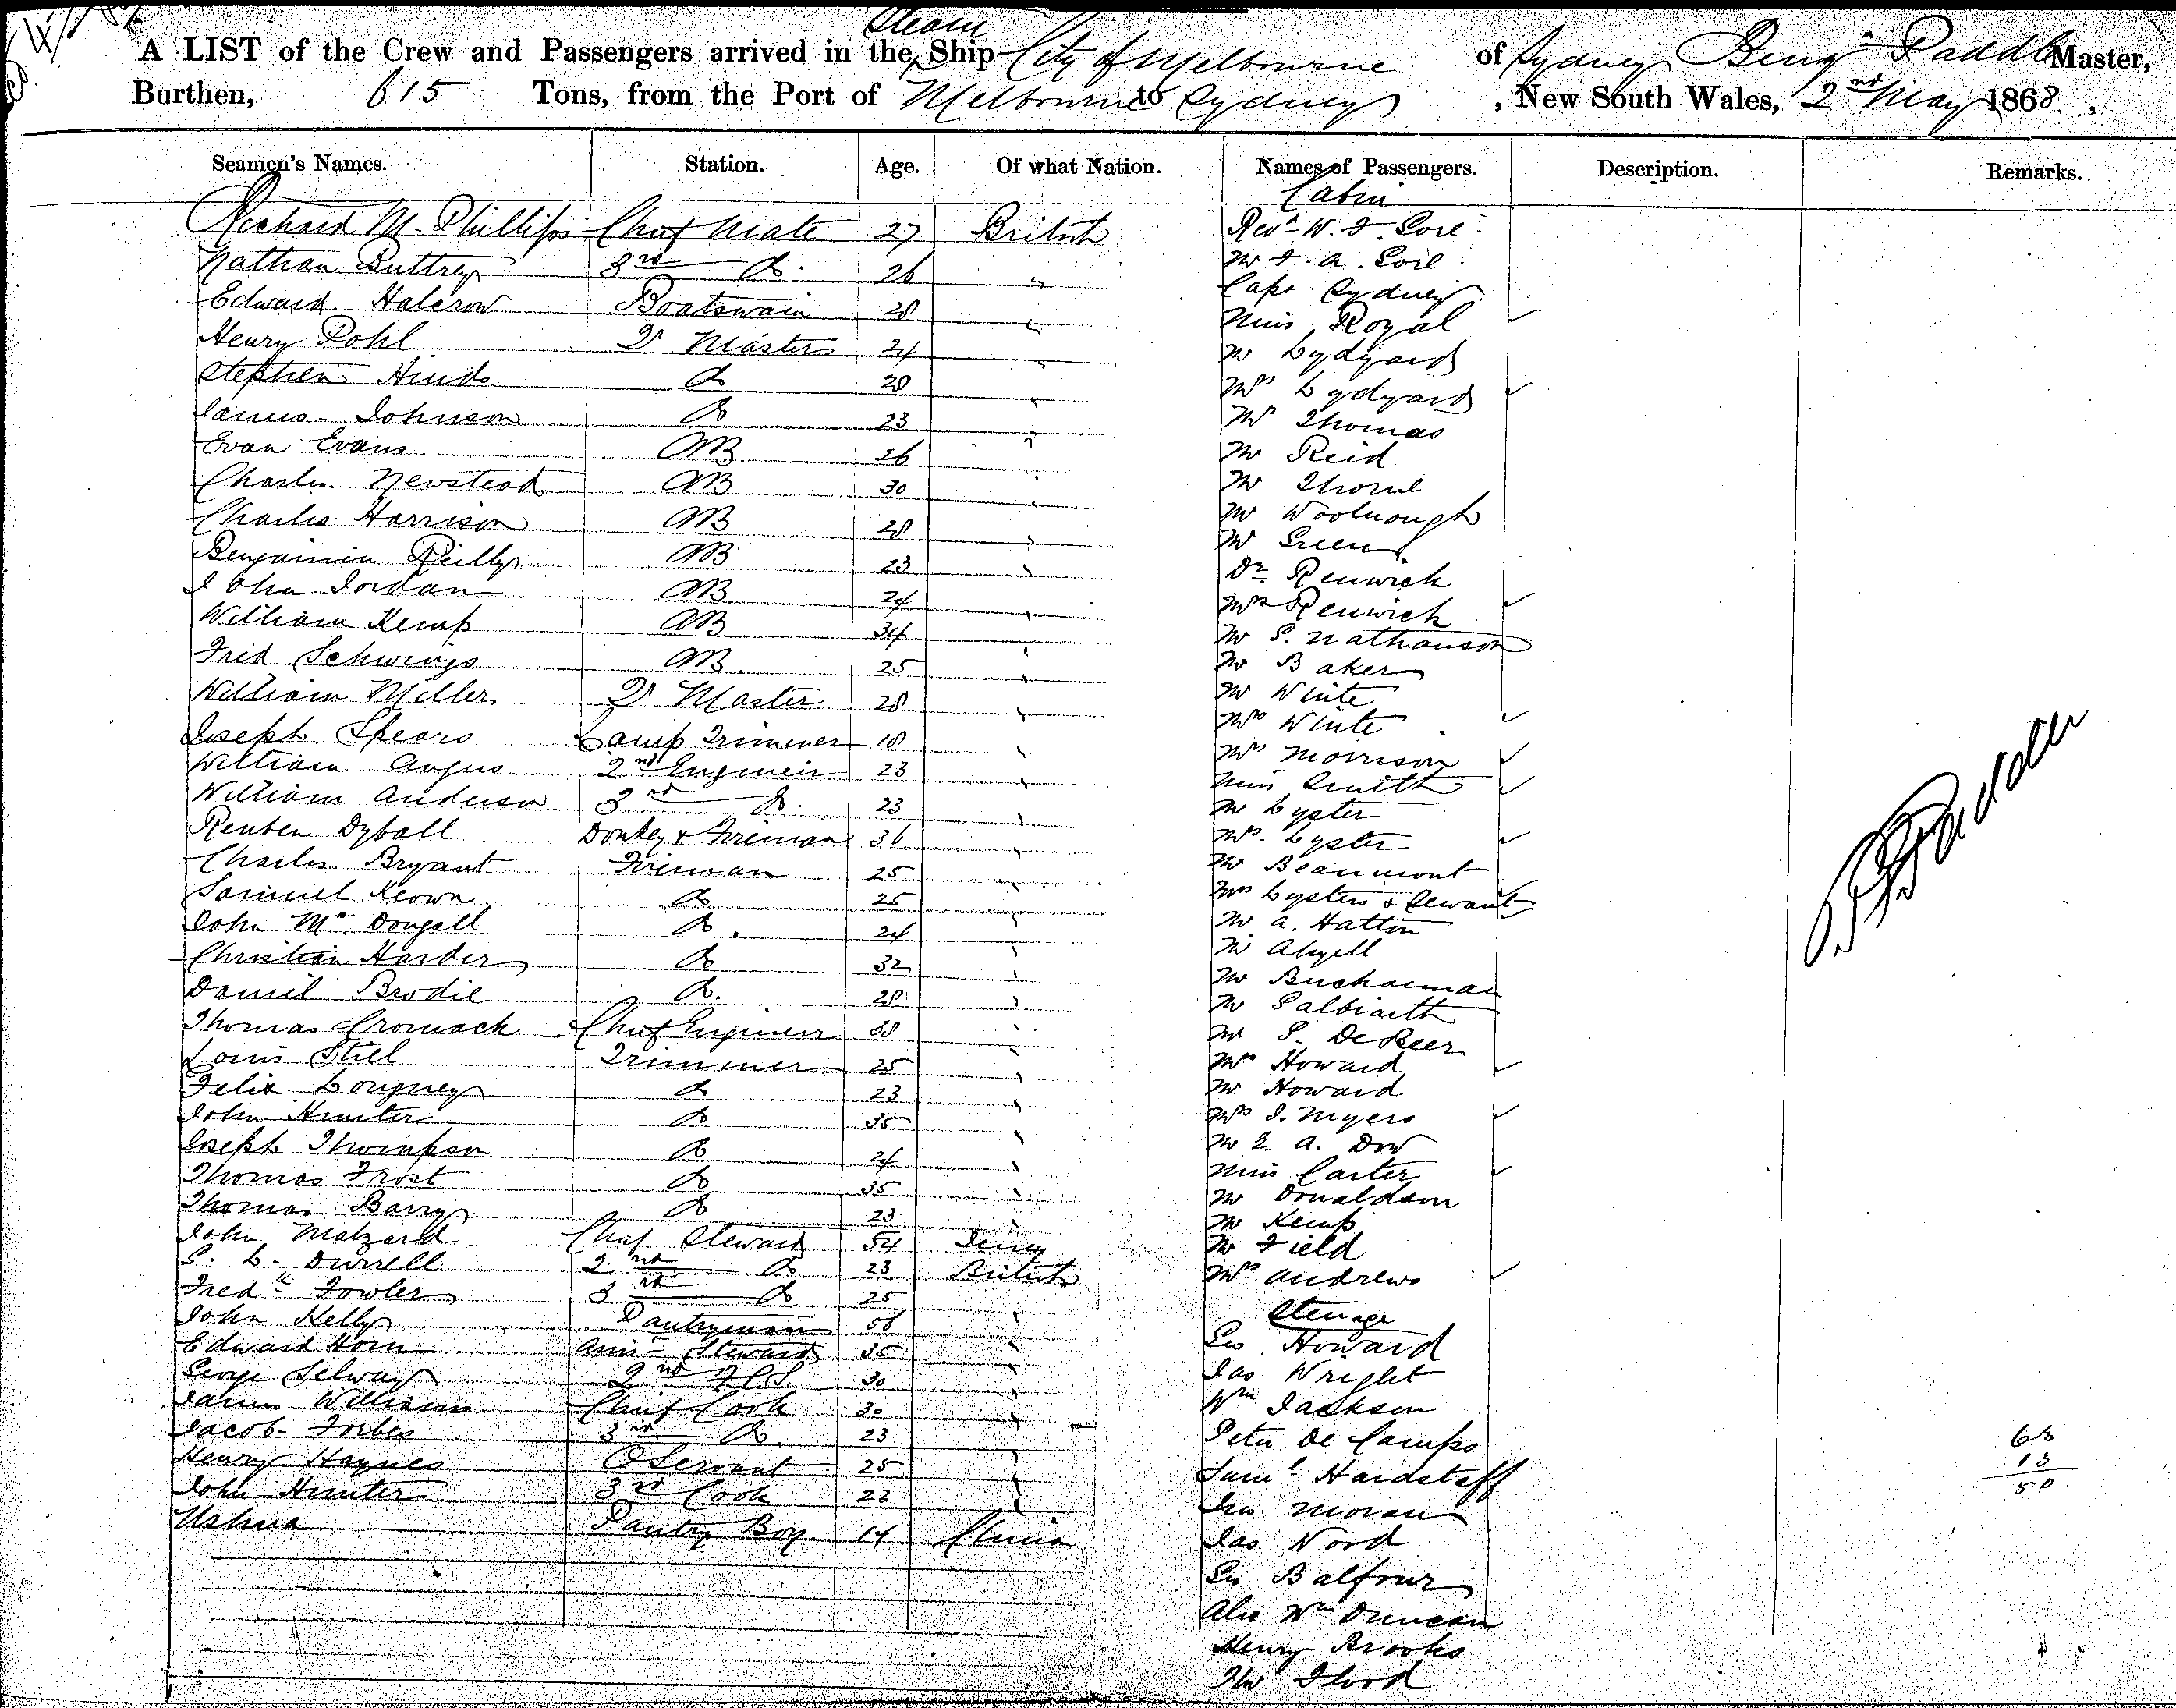 Steam
A LIST of the Crew and Passengers arrived in the Ship City of Melbourne of Sydney Benjn Paddle Master,
Burthen, 615 Tons, from the Port of Melbourne to Sydney, New South Wales, 2nd May 1868,
Seamen's Names. Station. Age. Of what Nation. Names of Passengers. Description. Remarks.
Cabin
Richard M. Phillips Chief Mate 27 British Revd W. F. Gore
Nathan Buttrey 3rd Do. 26 " Mr F. A. Gore
Edward Halcrow Boatswain 28 " Capt Sydney
Henry Pohl Qr Masters 24 " Miss Royal
Stephen Hinds Do 28 " Mr Lydyard
James Johnson Do 23 " Mrs Lydyard
Evan Evans AB 26 " Mr Thomas
Charles Newstead AB 30 " Mr Reid
Charles Harrison AB 28 " Mr Thorne
Benjamin Reilly AB 23 " Mr Woolnough
John Jordan AB 24 " Mr Green
William Kemp AB 34 " Dr Renwick
Fred Schwings AB. 25 " Mrs Renwick
William Miller Qr Master 28 " Mr S. Nathanson
Joseph Spears Lamp Trimmer 18 " Mr Baker
William Angus 2nd Engineer 23 " Mr White
William Anderson 3rd Do. 23 " Mrs White
Reuben Dyball Donkey & Fireman 36 " Mrs Morrison
Charles Bryant Fireman 25 " Miss Smith
Samuel Keown Do 25 " Mr Lyster
John McDougall Do. 24 " Mrs. Lyster
Christian Harder Do 32 " Mr Beaumont
Daniel Brodie Do. 28 " Mrs Lysters & Servant
Thomas Cromack Chief Engineer 38 " Mr A. Hatton
Louis Stiel Trimmer 25 " Mr
Felix Longney Do 23 " Mr Buchanan
John Hunter Do 35 " Mr Galbraith
Joseph Thompson Do 24 " Mr S. De Beer
Thomas Frost Do 35 " Mrs Howard
Thomas Barry Do 23 " Mr Howard
John Matzard Chief Steward 54 Jersey Mrs J. Myers
S. L. Durrell 2nd Do 23 British Mr E. A. Dow
Fredk Fowler 3rd Do 25 " Miss Carter
John Kelly Pantryman 56 " Mr Donaldson
Edward Horn Assist Steward 35 " Mr Kemp
George Selway 2nd 30 " Mr Field
James Williams Chief Cook 30 " Mrs Andrews
Jacob Forbes 3rd Do. 23 "
Henry Haynes O Servant 25 "
John Hunter 3rd Cook 23 "
Ushua Pantry Boy 14 China
Steerage
Geo Howard
Jas Wright
Wm Jackson
Peter De Campo
Saml Hardstaff
Jno Moran
Jas Nord
Geo Balfour
Alex Wm Duncan
Henry Brooks
Flood
B Paddle
68
18
50